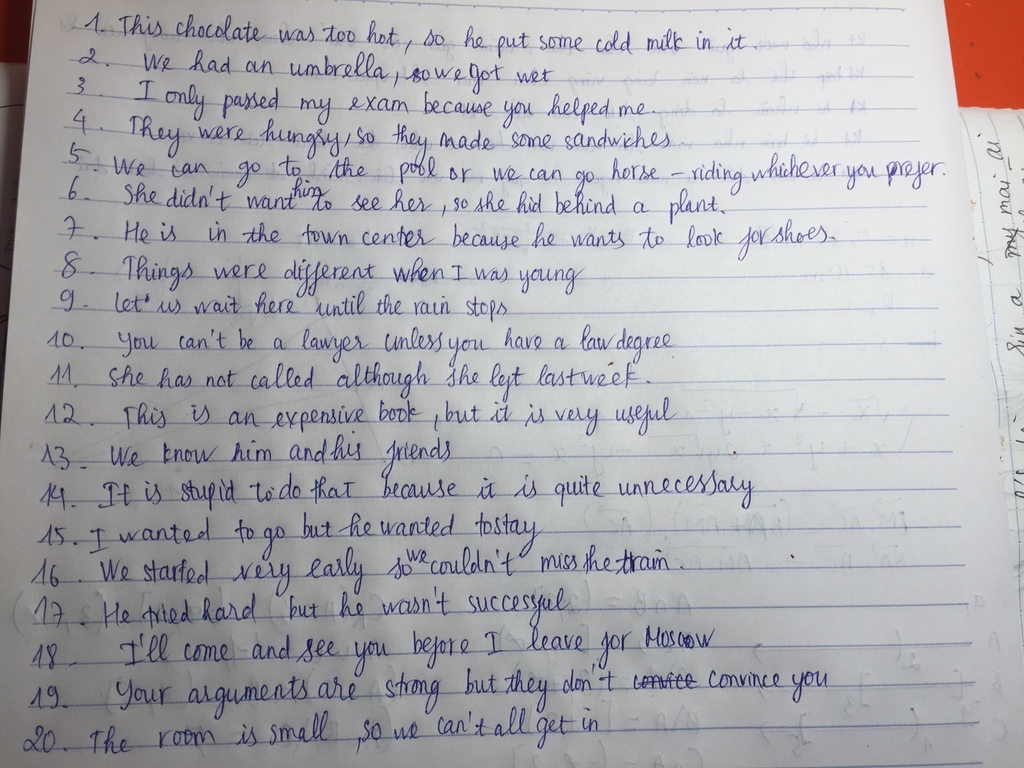 1. This chocolate was too hot, so he put some cold milk in it.
2. We had an umbrella, so we got wet
3. I only passed my exam because you helped me.
4. They were hungry, so they made some sandwiches.
5. We can go to the pool or we can go horse - riding whichever you prefer.
6. She didn't want him to see her, so she hid behind a plant.
7. He is in the town center because he wants to look for shoes.
8. Things were different when I was young
9. Let's us wait here until the rain stops
10. You can't be a lawyer unless you have a law degree
11. She has not called although she left last week.
12. This is an expensive book, but it is very useful
13. We know him and his friends
14. It is stupid to do that because it is quite unnecessary
15. I wanted to go but he wanted to stay
16. We started very early so we couldn't miss the train.
17. He tried hard but he wasn't successful
18. I'll come and see you before I leave for Moscow
19. Your arguments are strong but they don't convice convince you
20. The room is small, so we can't all get in